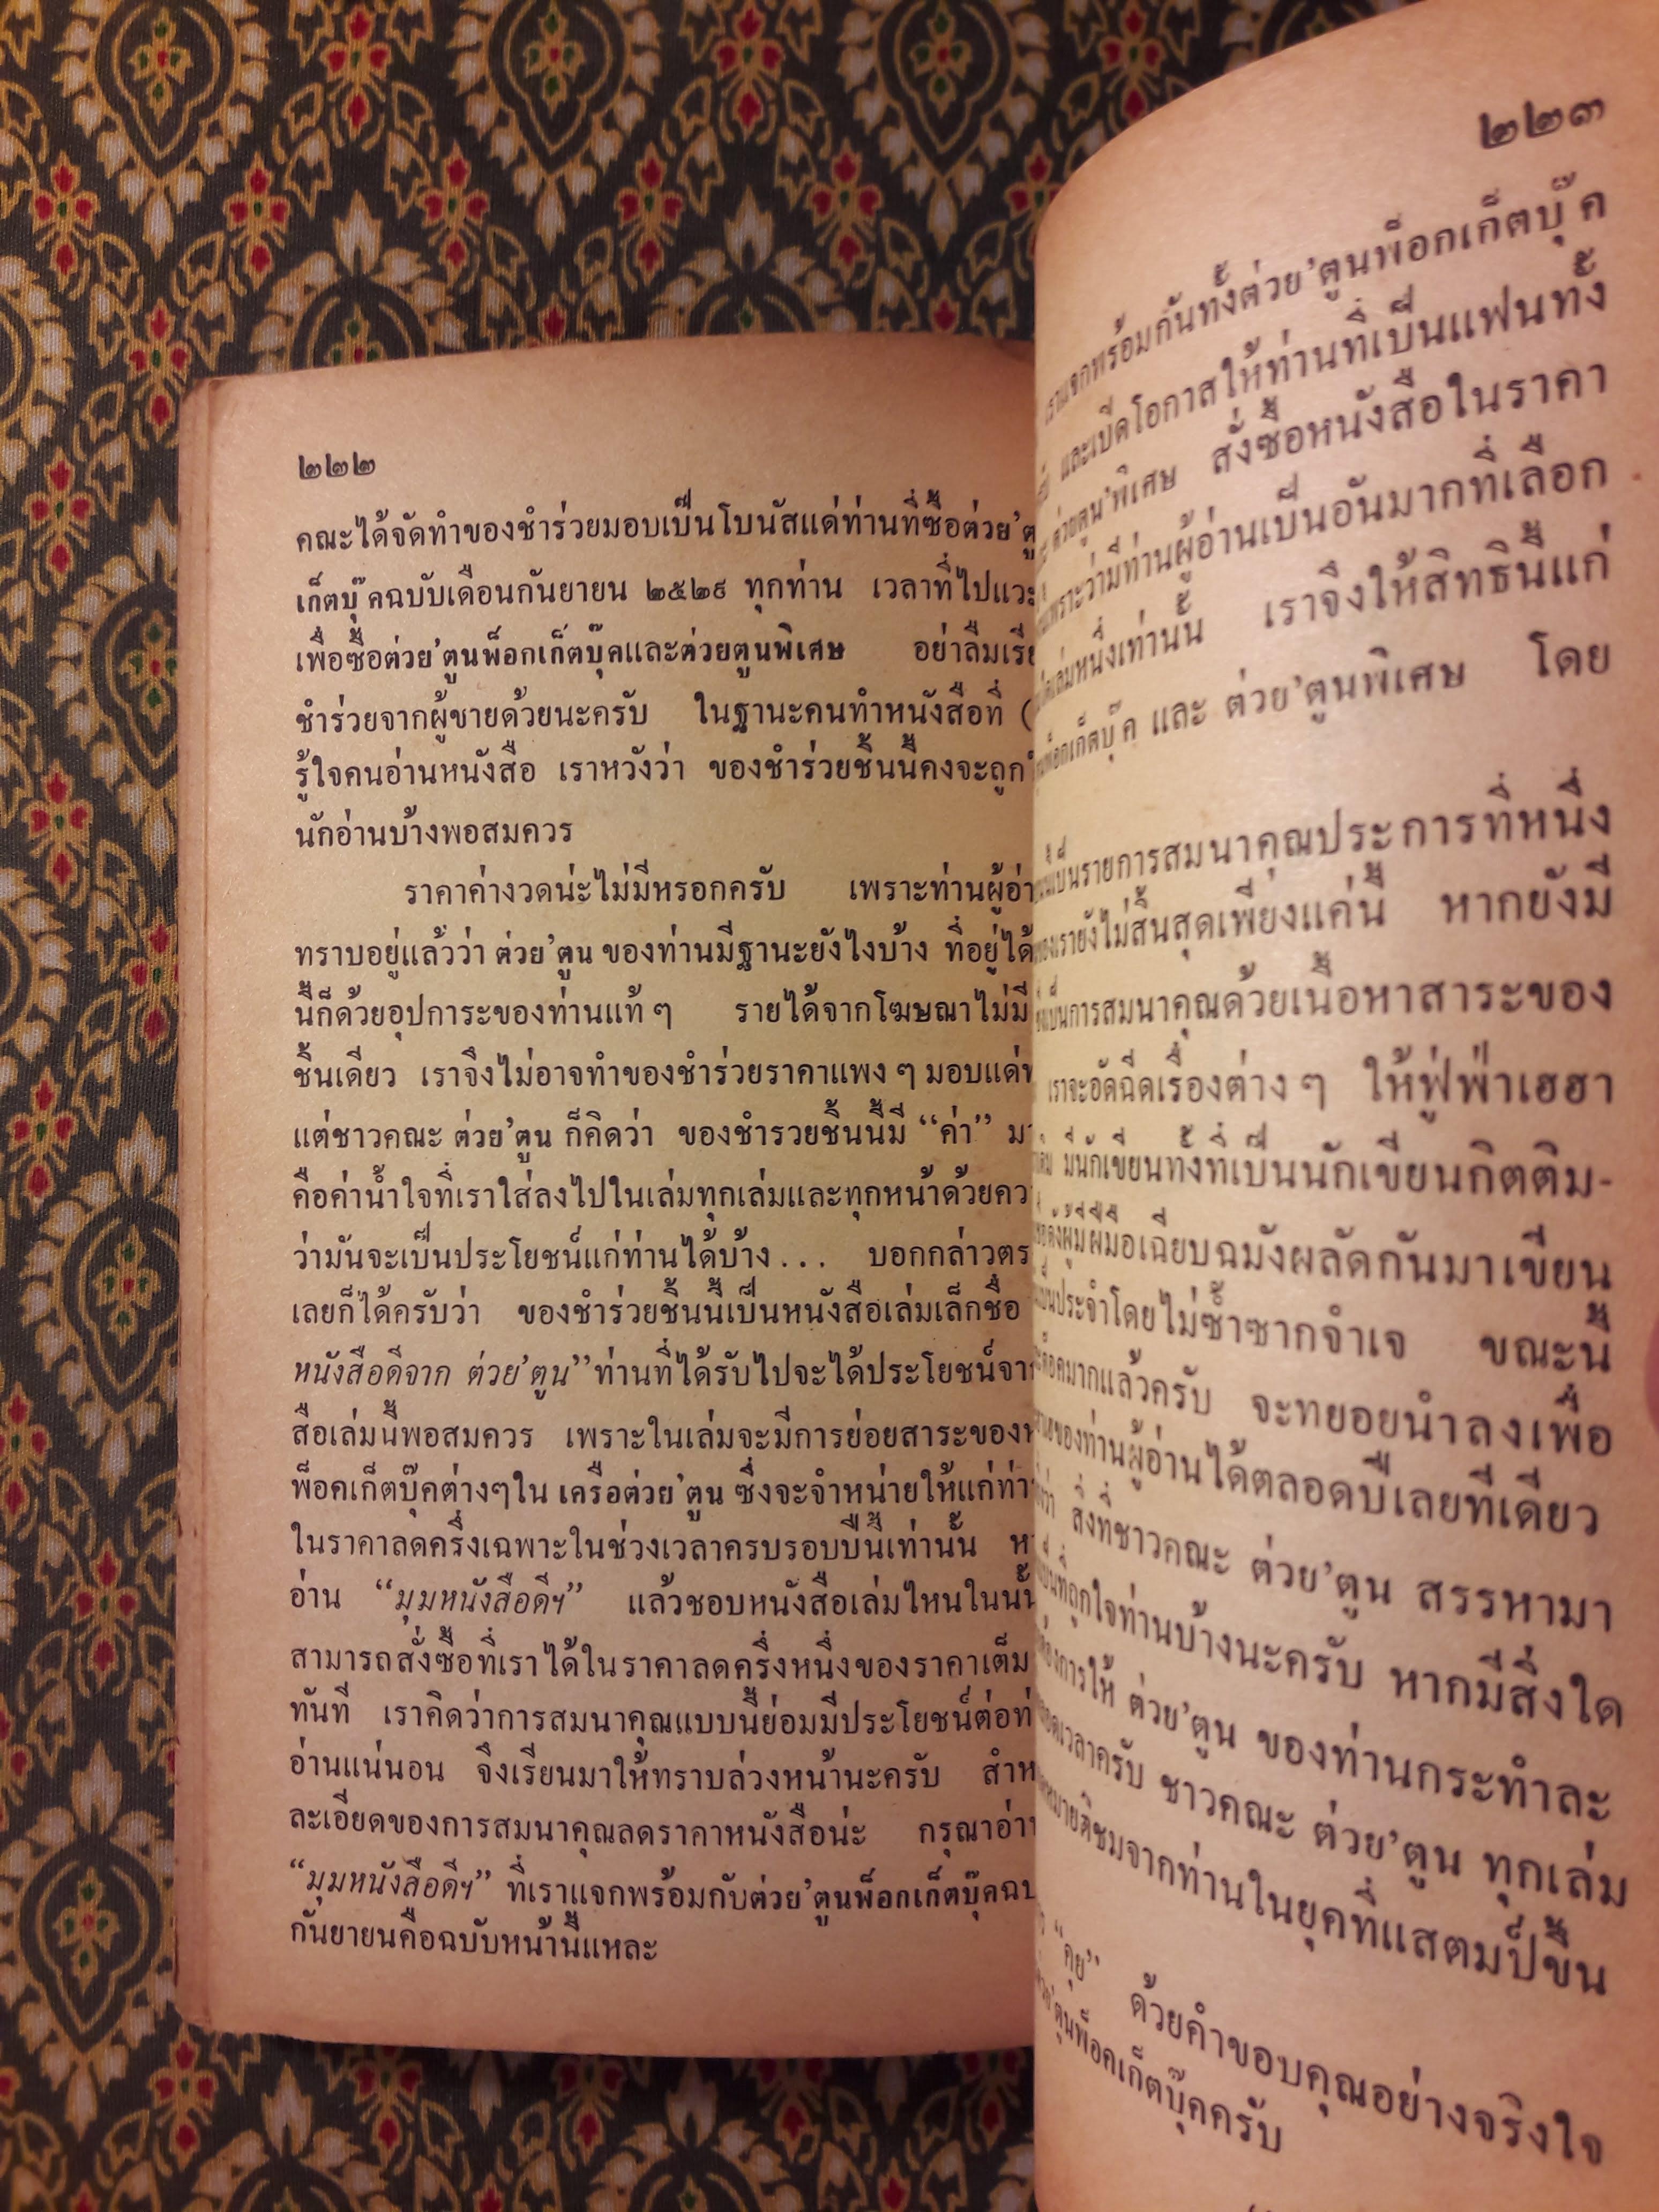 ๒๒๒
คณะได้จัดทำของชำร่วยมอบเป็นโบนัสแด่ท่านที่ซื้อต่วย'ตู
เก็ตบุ๊คฉบับเดือนกันยายน ๒๕๒๙ ทุกท่าน เวลาที่ไปแวะ
เพื่อซื้อต่วย'ตูนพ็อกเก็ตบุ๊คและต่วยตูนพิเศษ อย่าลืมเรีย
ชำร่วยจากผู้ขายด้วยนะครับ ในฐานะคนทำหนังสือที่ (
รู้ใจคนอ่านหนังสือ เราหวังว่า ของชำร่วยชิ้นนี้คงจะถูกใ
นักอ่านบ้างพอสมควร
ราคาค่างวดน่ะไม่มีหรอกครับ เพราะท่านผู้อ่า
ทราบอยู่แล้วว่า ต่วย'ตูน ของท่านมีฐานะยังไงบ้าง ที่อยู่ได้
นี้ก็ด้วยอุปการะของท่านแท้ ๆ รายได้จากโฆษณาไม่มี
ชิ้นเดียว เราจึงไม่อาจทำของชำร่วยราคาแพง ๆ มอบแด่ท
แต่ชาวคณะ ต่วย'ตูน ก็คิดว่า ของชำรวยชิ้นนี้มี “ค่า” มา
คือค่าน้ำใจที่เราใส่ลงไปในเล่มทุกเล่มและทุกหน้าด้วยคว
ว่ามันจะเป็นประโยชน์แก่ท่านได้บ้าง... บอกกล่าวตร
เลยก็ได้ครับว่า ของชำร่วยชิ้นนี้เป็นหนังสือเล่มเล็กชื่อ
หนังสือดีจาก ต่วย'ตูน” ท่านที่ได้รับไปจะได้ประโยชน์จา
สือเล่มนี้พอสมควร เพราะในเล่มจะมีการย่อยสาระของห
พ็อคเก็ตบุ๊คต่างๆใน เครือต่วย'ตูน ซึ่งจะจำหน่ายให้แก่ท่า
ในราคาลดครึ่งเฉพาะในช่วงเวลาครบรอบปีนี้เท่านั้น ห
อ่าน “มุมหนังสือดีฯ” แล้วชอบหนังสือเล่มไหนในนั้
สามารถสั่งซื้อที่เราได้ในราคาลดครึ่งหนึ่งของราคาเต็ม
ทันที เราคิดว่าการสมนาคุณแบบนี้ย่อมมีประโยชน์ต่อท่
อ่านแน่นอน จึงเรียนมาให้ทราบล่วงหน้านะครับ สำห
ละเอียดของการสมนาคุณลดราคาหนังสือน่ะ กรุณาอ่าน
“มุมหนังสือดีฯ” ที่เราแจกพร้อมกับต่วย'ตูนพ็อกเก็ตบุ๊คฉบ
กันยายนคือฉบับหน้านี้แหละ
๒๒๓
เราแจกพร้อมกันทั้งต่วย'ตูนพ็อกเก็ตบุ๊ค
และเปิดโอกาสให้ท่านที่เป็นแฟนทั้ง
ต่วยตูน'พิเศษ สั่งซื้อหนังสือในราคา
เพราะว่ามีท่านผู้อ่านเป็นอันมากที่เลือก
เล่มหนึ่งเท่านั้น เราจึงให้สิทธินี้แก่
พ็อกเก็ตบุ๊ค และ ต่วย'ตูนพิเศษ โดย
เป็นรายการสมนาคุณประการที่หนึ่ง
ของเรายังไม่สิ้นสุดเพียงแค่นี้ หากยังมี
เป็นการสมนาคุณด้วยเนื้อหาสาระของ
เราจะอัดฉีดเรื่องต่าง ๆ ให้ฟู่ฟ่าเฮฮา
มีนักเขียนทั้งที่เป็นนักเขียนกิตติม-
ผู้มีฝีมือเฉียบฉมังผลัดกันมาเขียน
เป็นประจำโดยไม่ซ้ำซากจำเจ ขณะนี้
มากแล้วครับ จะทยอยนำลงเพื่อ
ของท่านผู้อ่านได้ตลอดปีเลยทีเดียว
ว่า สิ่งที่ชาวคณะ ต่วย'ตูน สรรหามา
ที่ถูกใจท่านบ้างนะครับ หากมีสิ่งใด
ต้องการให้ ต่วย'ตูน ของท่านกระทำละ
เวลาครับ ชาวคณะ ต่วย'ตูน ทุกเล่ม
ติชมจากท่านในยุคที่แสตมป์ขึ้น
“คุย” ด้วยคำขอบคุณอย่างจริงใจ
ต่วย'ตูนพ็อคเก็ตบุ๊คครับ